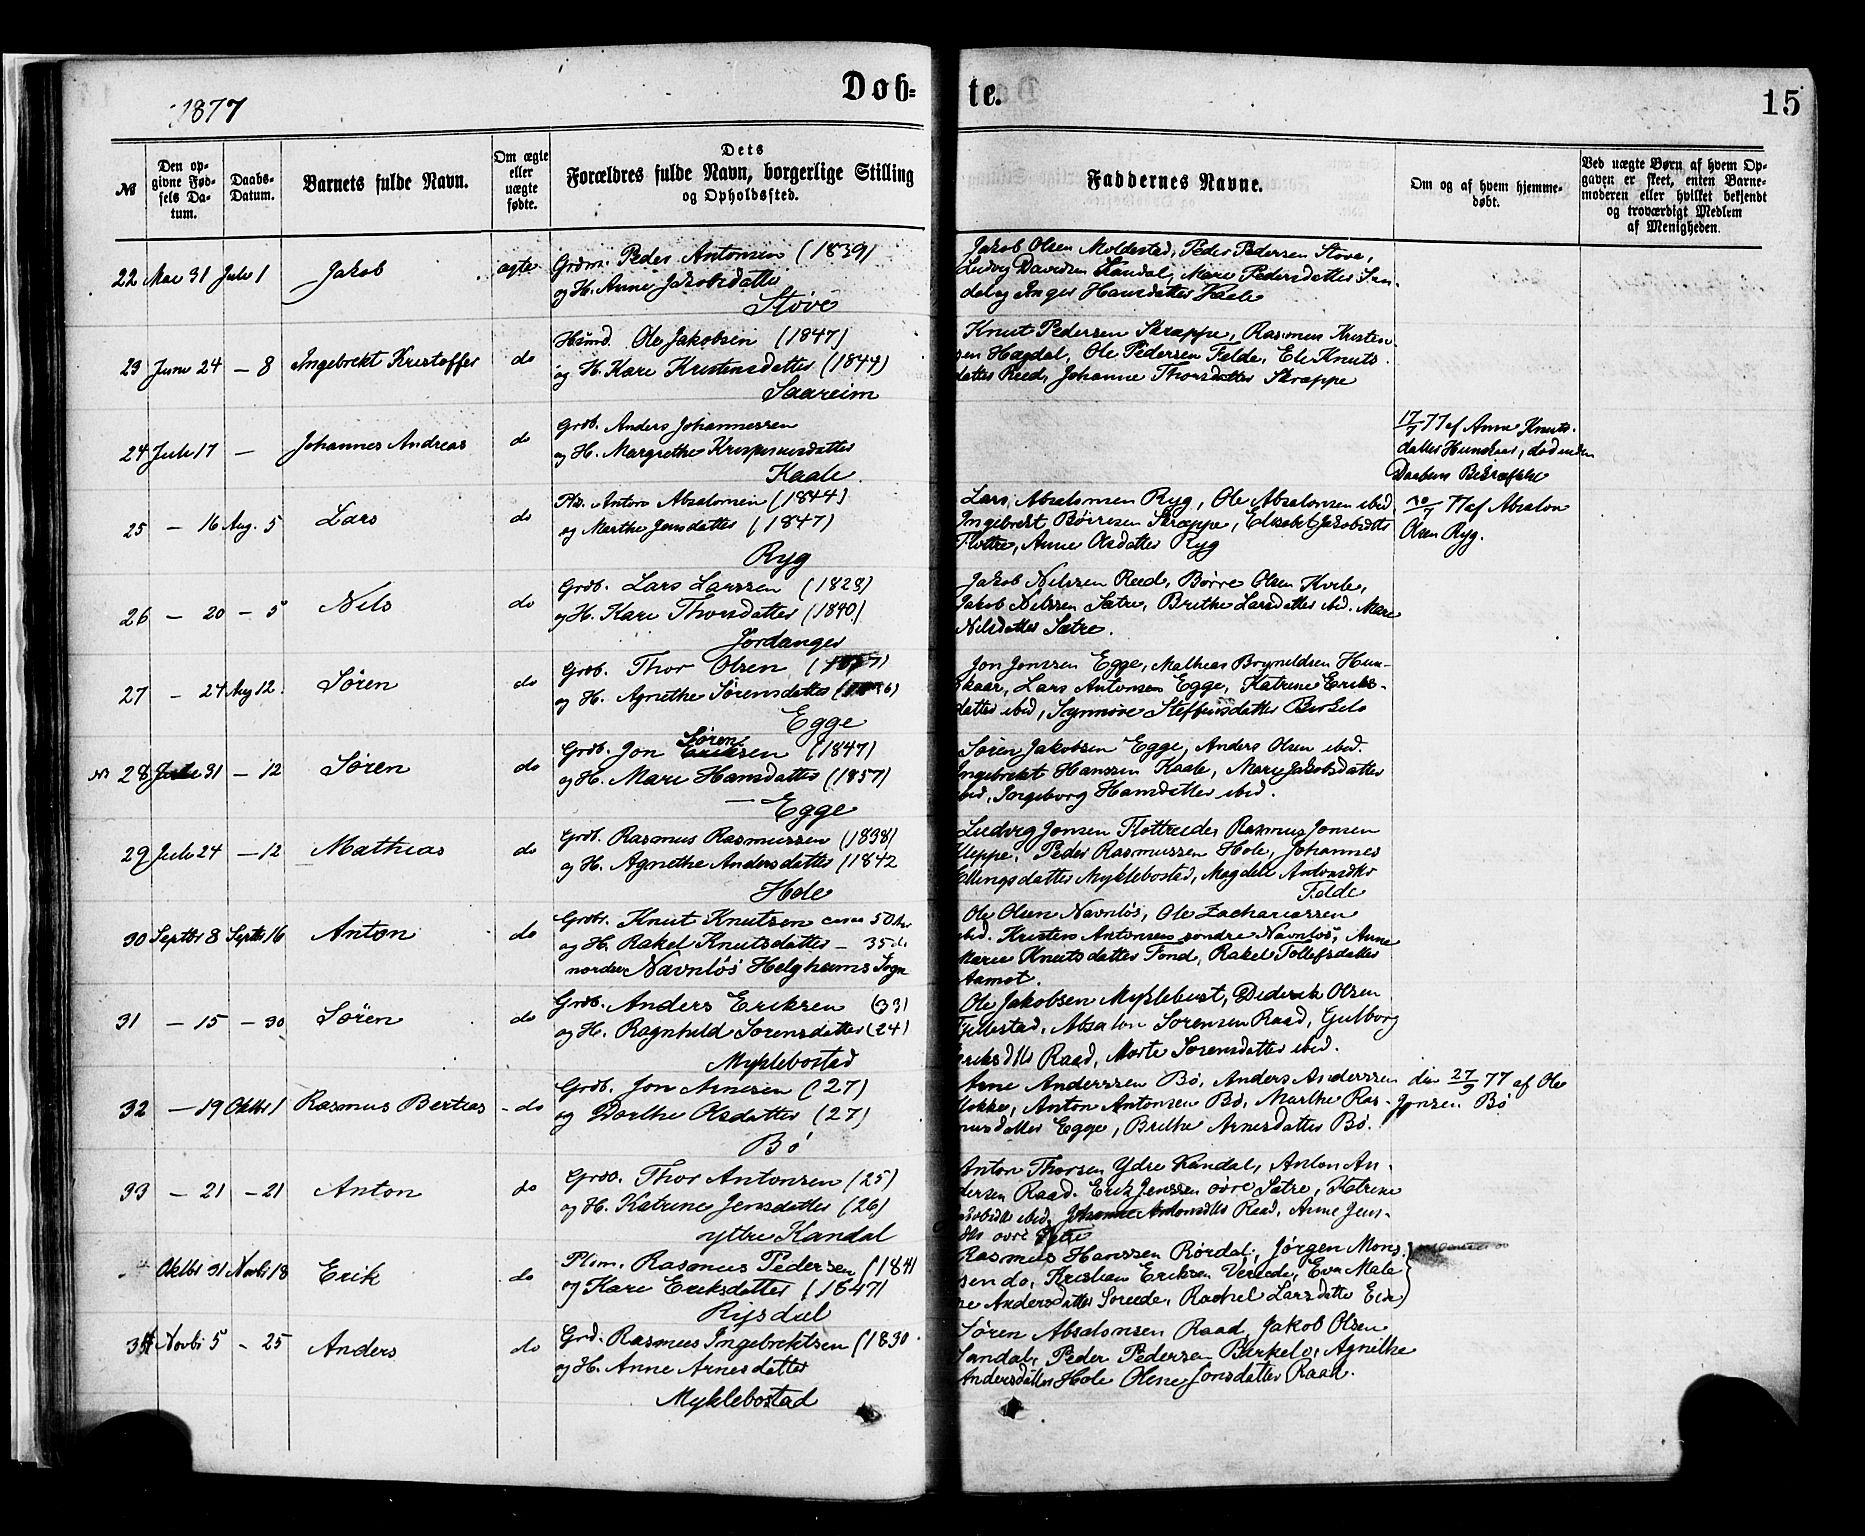 1877
Døb-
te.
15
№
Den op-
givne Fød-
sels Da-
tum.
Daabs-
Datum.
Barnets fulde Navn.
Om ægte
eller
uægte
fødte.
Dets
Forældres fulde Navn, borgerlige Stilling
og Opholdssted.
Faddernes Navne.
Om og af hvem hjemme-
døbt.
Ved uægte Børn af hvem Op-
gaven er skeet, enten Barne-
moderen eller hvilket bekjendt
og troværdigt Medlem
af Menigheden.
22 Mai 31 Juli 1 Jakob ægte Grdm. Peder Antonsen (1839)
og H. Anne Jakobsdatter
Støve
Jakob Olsen Moldestad, Peder Pedersen Støve,
Ludvig Davidsen Sandal, Mari Pedersdatter San-
dal og Inger Hansdatter Kaale
23 Juni 24 – 8 Ingebrekt Kristoffer do Husmd. Ole Jakobsen (1847)
og H. Kari Kristensdatter (1844)
Saareim
Knut Pedersen Skrappe, Rasmus Kristen-
sen Hægdal, Ole Pedersen Felde, Eli Knuts-
datter Reed, Johanne Thorsdatter Skræppe
24 Juli 17 – Johannes Andreas do Grdb. Anders Johannessen
og H. Margrethe Krispinusdatter
Kaale.
17/7 77 af Anne Knuts-
datter Hunskaar, død inden
Daabens Bekræftelse
25 – 16 Aug. 5 Lars do Pds. Anton Absalonsen (1844)
og Marthe Jensdatter (1847)
Ryg
Lars Absalonsen Ryg, Ole Absalonsen ibid
Ingebrekt Børresen Skræppe, Elisabet Jakobsdtr
Flottre, Anne Olsdatter Ryg
20/7 77 af Absalon
Olsen Ryg.
26 – 20 – 5 Nils do Grdb. Lars Larssen (1828)
og H. Kari Thorsdatter (1840)
Jordanger
Jakob Nilssen Reed, Børre Olsen Kvile,
Jakob Nilssen Sætre, Brithe Larsdatter ibd. Mari
Nilsdatter Sætre.
27 – 24 Aug 12. Søren do Grdb. Thor Olsen
og H. Agnethe Sørensdatter
Egge
Jon Jonssen Egge, Mathias Brynildsen Hun-
skaar, Lars Antonsen Egge, Katrine Eriks-
datter ibid, Synnøve Steffensdatter Birkelo
28 Juli 31 – 12 Søren do Grdb. Jon Søren Eriksen (1847)
og H. Mari Hansdatter (1857)
– Egge
Søren Jakobsen Egge, Anders Olsen ibid.
Ingebrekt Hanssen Kaale, Mari Jakobsdatter
ibid, Ingeborg Hansdatter ibid.
29 Juli 24 – 12 Mathias do Grdb. Rasmus Rasmussen (1838)
og H. Agnethe Andersdatter (1842
Hole
Ludvig Jonsen Flottreeder Rasmus Jonsen
Kleppe, Peder Rasmussen Hole, Johannes
Ellingsdatter Myklebostad, Magdeli Antonsdtr
Felde
30 Septbr 8 Septbr 16 Anton do Grdbr. Knut Knutsen circa 50 Aar
og H. Rakel Knutsdatter – 35 do
nordre Navnløs Helgheims Sogn
Ole Olsen Navnløs, Ole Zachariassen
ibid. Kristen Antonsen søndre Navnløs, Anne
Marie Knutsdatter Fond, Rakel Tollefsdatter
Aamot.
31 – 15 – 30 Søren do Grdb. Anders Eriksen (33)
og H. Ragnhild Sørensdatter (24)
Myklebostad
Ole Jakobsen Myklebust, Diderik Olsen
Tyllestad, Absalon Sørensen Raad, Gulborg
Eriksdtr Raad, Marte Sørensdatter ibid.
32 – 19 Oktbr 1 Rasmus Bertias – do Grdb. Jon Arnesen (27)
og Dorthe Olsdatter (27)
Bø
Arne Anderssen Bø, Anders Anderssen
Løkke, Anton Antonsen Bø, Marthe Ras-
musdatter Egge, Brithe Arnesdatter Bø.
den 27/9 77 af Ole
Jonsen Bø
33 – 21 – 21 Anton do Grdb. Thor Antonsen (25)
og H. Katrine Jensdatter (26)
yttre Kandal
Anton Thorsen Ydre Kandal, Anton An-
dersen Raad. Erik Jenssen øvre Sætre, Katrine
ibid, Johanne Antonsdtr Raad, Anne Jens-
dtr øvre Sætre
Oktbr 31 Novbr 18 Erik do Plsm. Rasmus Pedersen (1841
og Kari Eriksdatter (1847)
Risdal
Rasmus Hanssen Rørdal, Jørgen Mons-
sen do, Kristian Eriksen Vereide, Eva Male
ne Andersdatter Soreide, Rachel Larsdatter Eide
34 Novbr 5 – 25 Anders do Grd. Rasmus Ingebrektsen (1830
og H. Anne Arnesdatter
Myklebostad
Søren Absalonsen Raad, Jakob Olsen
Sandal, Peder Pedersen Birkelo, Agnithe
Andersdatter Hole Oline Jonsdatter Raad.